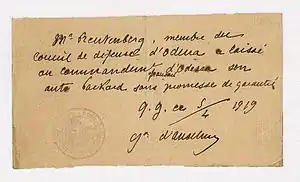 Mr Reutenberg, membre du
Conseil de défense d'Odessa a laissé
au commandement français d'Odessa son
auto Packard sans promesse de garantie
Q.G. ce 5/4 1919
Gn d'Anselme